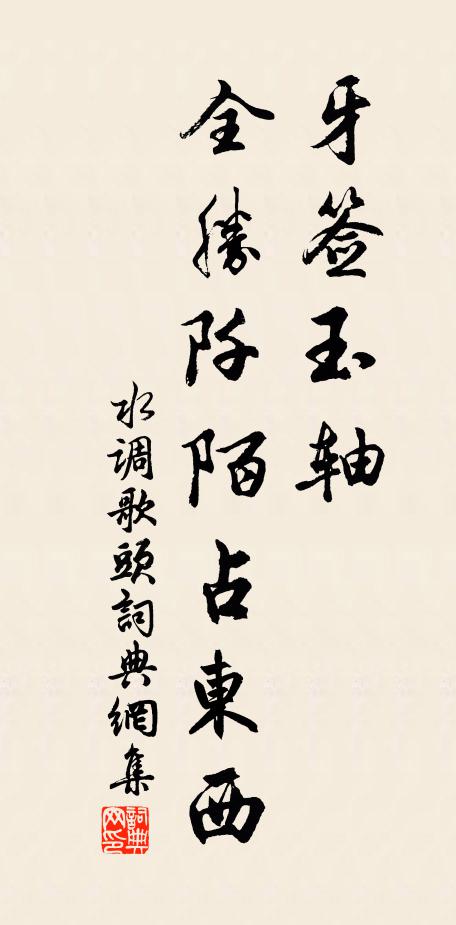 牙签玉轴
全勝阡陌占東西
水调歌頭詞典網集
詞典网印